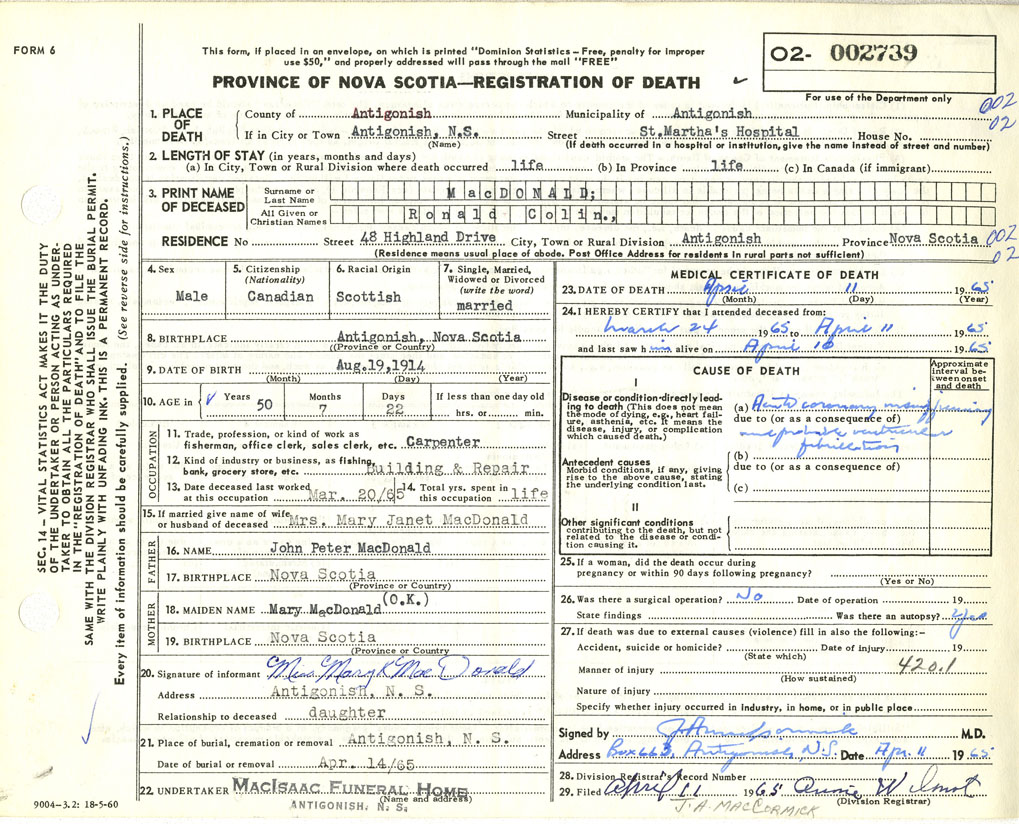 FORM 6
This form, if placed in an envelope, on which is printed "Dominion Statistics – Free, penalty for improper
use $50," and properly addressed will pass through the mail "FREE"
PROVINCE OF NOVA SCOTIA—REGISTRATION OF DEATH ✓
02- 002739
For use of the Department only
SEC. 14 – VITAL STATISTICS ACT MAKES IT THE DUTY
OF THE UNDERTAKER OR PERSON ACTING AS UNDER-
TAKER TO OBTAIN ALL THE PARTICULARS REQUIRED
IN THE "REGISTRATION OF DEATH" AND TO FILE THE
SAME WITH THE DIVISION REGISTRAR WHO SHALL ISSUE THE BURIAL PERMIT.
WRITE PLAINLY WITH UNFADING INK. THIS IS A PERMANENT RECORD.
Every item of information should be carefully supplied. (See reverse side for instructions.)
1. PLACE OF DEATH
County of Antigonish Municipality of Antigonish 002
02
If in City or Town Antigonish, N.S. Street St.Martha's Hospital House No.
(Name) (If death occurred in a hospital or institution, give the name instead of street and number)
2. LENGTH OF STAY (in years, months and days)
(a) In City, Town or Rural Division where death occurred life (b) In Province life (c) In Canada (if immigrant)
3. PRINT NAME OF DECEASED
Surname or Last Name MacDONALD;
All Given or Christian Names Ronald Colin.,
RESIDENCE No Street 48 Highland Drive City, Town or Rural Division Antigonish Province Nova Scotia 002
02
(Residence means usual place of abode. Post Office Address for residents in rural parts not sufficient)
4. Sex Male
5. Citizenship (Nationality) Canadian
6. Racial Origin Scottish
7. Single, Married, Widowed or Divorced (write the word) married
8. BIRTHPLACE Antigonish, Nova Scotia
(Province or Country)
9. DATE OF BIRTH Aug.19,1914
(Month) (Day) (Year)
10. AGE in ✓ Years 50 Months 7 Days 22 If less than one day old
hrs. or min.
OCCUPATION
11. Trade, profession, or kind of work as
fisherman, office clerk, sales clerk, etc. Carpenter
12. Kind of industry or business, as fishing,
bank, grocery store, etc. Building & Repair
13. Date deceased last worked at this occupation Mar. 20/65
14. Total yrs. spent in this occupation life
15. If married give name of wife
or husband of deceased Mrs. Mary Janet MacDonald
FATHER
16. NAME John Peter MacDonald
17. BIRTHPLACE Nova Scotia
(Province or Country)
MOTHER
18. MAIDEN NAME Mary MacDonald (O.K.)
19. BIRTHPLACE Nova Scotia
(Province or Country)
20. Signature of informant Miss Mary K MacDonald
Address Antigonish, N. S.
Relationship to deceased daughter
21. Place of burial, cremation or removal Antigonish, N. S.
Date of burial or removal Apr. 14/65
22. UNDERTAKER MACISAAC FUNERAL HOME
(Name and address)
ANTIGONISH, N. S.
9004–3.2: 18-5-60
MEDICAL CERTIFICATE OF DEATH
23. DATE OF DEATH April 11 1965
(Month) (Day) (Year)
24. I HEREBY CERTIFY that I attended deceased from:
March 24 1965, to April 11 1965
and last saw him alive on April 10 1965
CAUSE OF DEATH
Approximate interval between onset and death
I
Disease or condition directly leading to death (This does not mean the mode of dying, e.g., heart failure, asthenia, etc. It means the disease, injury, or complication which caused death.)
(a) Acute coronary insufficiency
due to (or as a consequence of)
probable ventricular
fibrillation
(b)
due to (or as a consequence of)
(c)
Antecedent causes
Morbid conditions, if any, giving rise to the above cause, stating the underlying condition last.
II
Other significant conditions
contributing to the death, but not related to the disease or condition causing it.
25. If a woman, did the death occur during
pregnancy or within 90 days following pregnancy?
(Yes or No)
26. Was there a surgical operation? No Date of operation 19
State findings Was there an autopsy?
27. If death was due to external causes (violence) fill in also the following:–
Accident, suicide or homicide? Date of injury 19
(State which)
Manner of injury 420.1
(How sustained)
Nature of injury
Specify whether injury occurred in industry, in home, or in public place
Signed by M.D.
Address Box 663, Antigonish, N.S. Date Apr. 11 1965
28. Division Registrar's Record Number
29. Filed April 11 1965 Annie Wilmot
(Division Registrar)
J.A. MACCORMICK